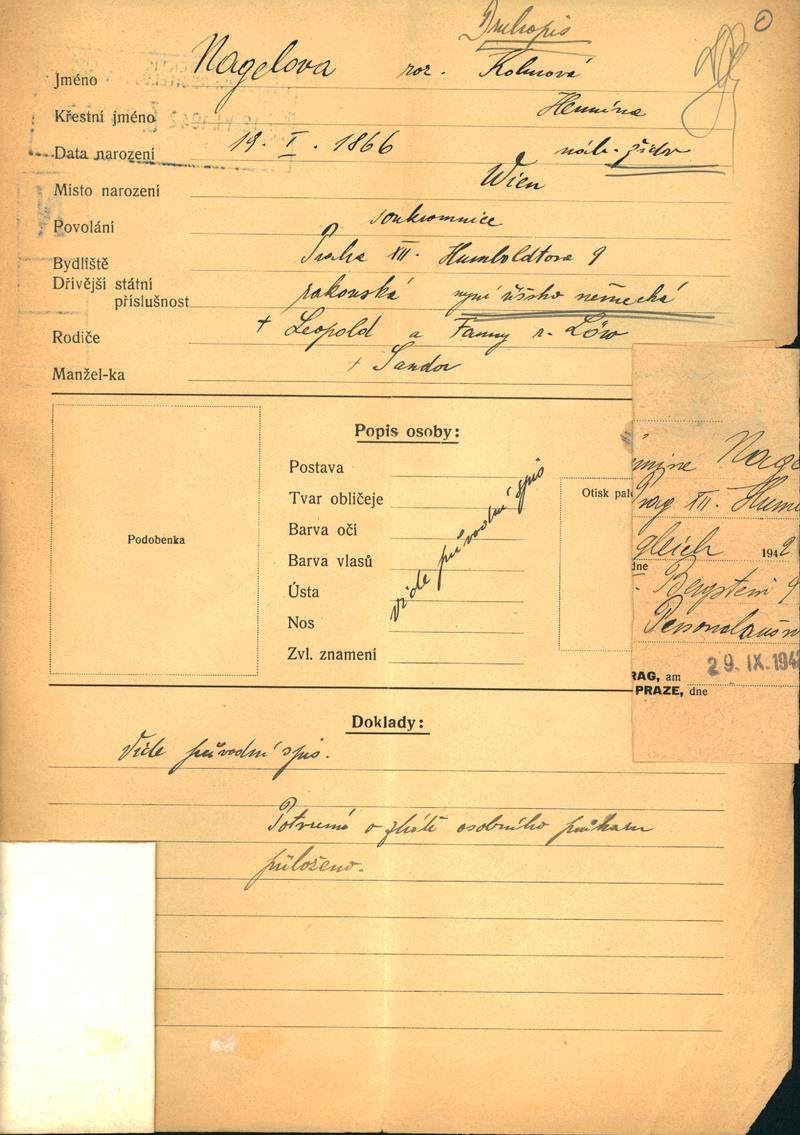 Druhopis
Jméno Nagelova roz. Kohnová
Křestní jméno Hermina
Data narození 19. I. 1866 náb. židov
Místo narození Wien
Povolání soukromnice
Bydliště Praha XII. Humboldtova 9
Dřívější státní
příslušnost rakouská nyní říšsko německá
Rodiče + Leopold a Fanny r. Löw
Manžel-ka + Sandor
Popis osoby:
Postava
Tvar obličeje
Barva očí
Barva vlasů
Ústa
Nos
Zvl. znamení
vide průvodní spis
Podobenka
Otisk pal
mine Nage
Prag XII. Hum
gleich 1942
dne
Bergstein 9
Personalausw
29. IX. 1942
RAG, am
PRAZE, dne
Doklady:
Vide průvodní spis.
Potvrzení o ztrátě osobního průkazu
přiloženo.